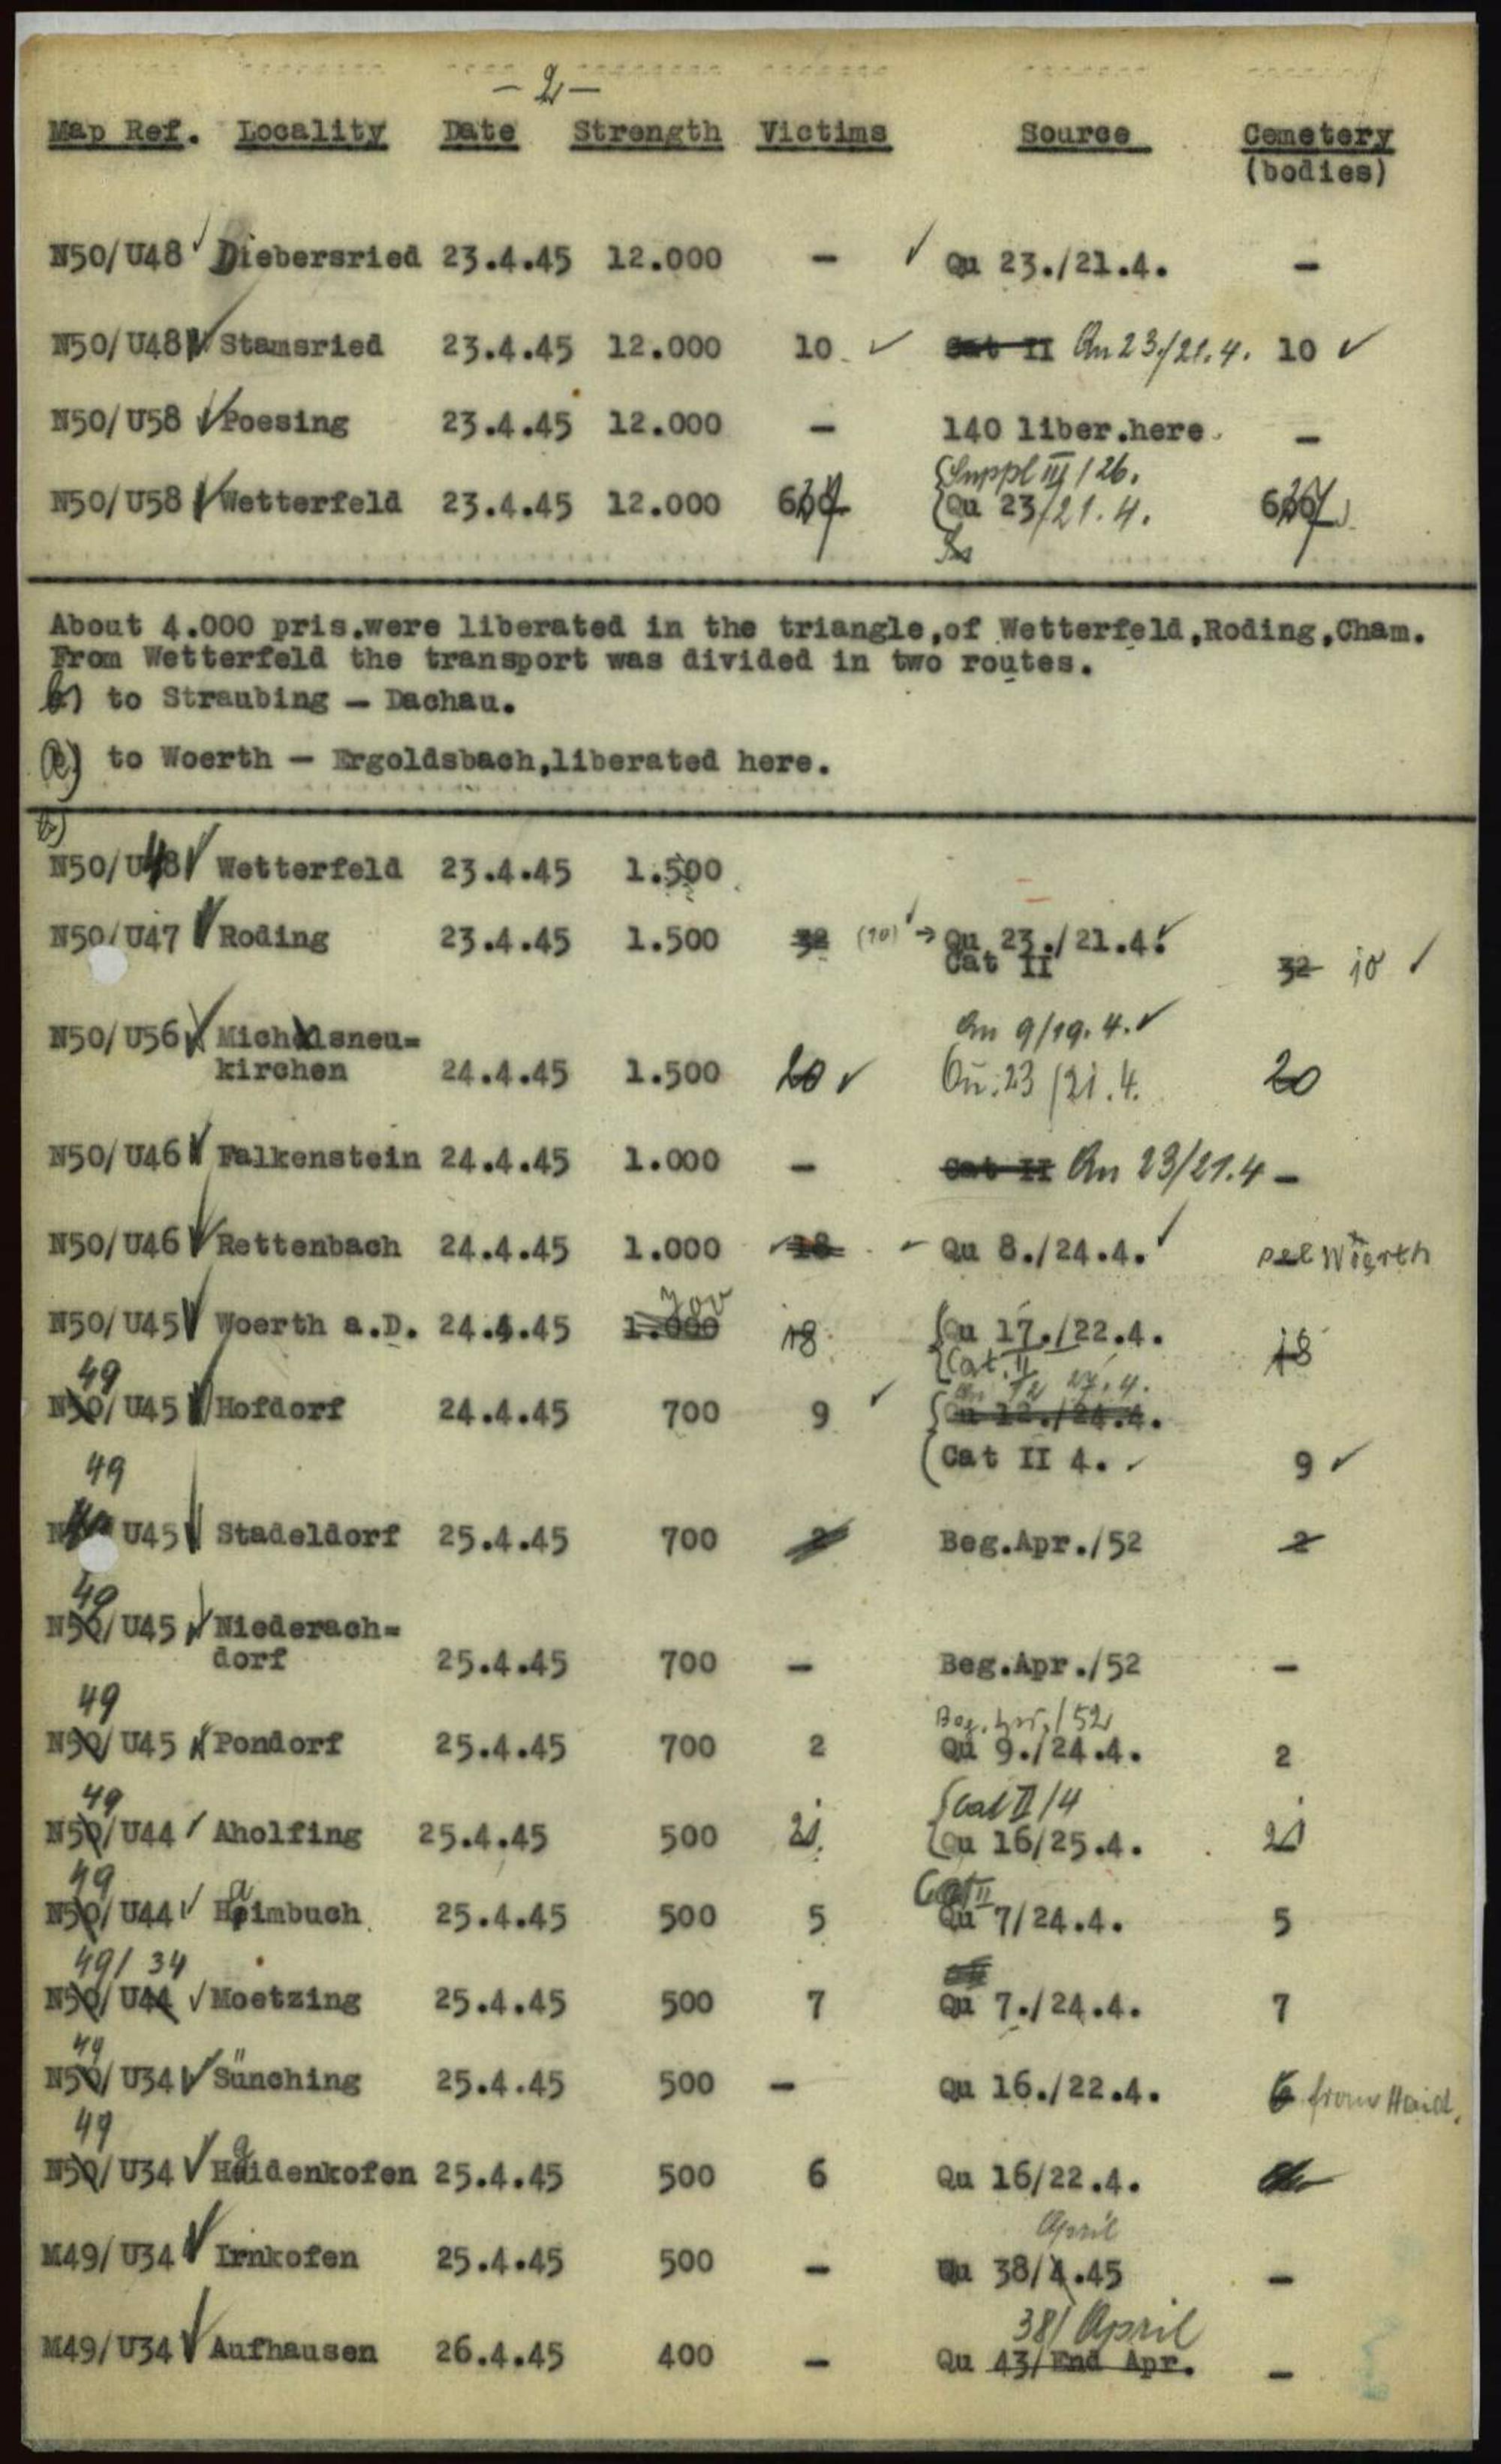 - 2 -
Map Ref. Locality Date Strength Victims Source Cemetery
(bodies)
N50/U48 Diebersried 23.4.45 12.000 - Qu 23./21.4. -
N50/U48 Stamsried 23.4.45 12.000 10 Cat II Qu 23./21.4. 10
N50/U58 Poesing 23.4.45 12.000 - 140 liber.here. -
Suppl III/26.
N50/U58 Wetterfeld 23.4.45 12.000 Qu 23/21.4.
About 4.000 pris.were liberated in the triangle,of Wetterfeld,Roding,Cham.
From Wetterfeld the transport was divided in two routes.
b) to Straubing - Dachau.
a) to Woerth - Ergoldsbach,liberated here.
b)
N50/U48 Wetterfeld 23.4.45 1.500
N50/U47 Roding 23.4.45 1.500 32 (10) → Qu 23./21.4.
Cat II 32 10
Qu 9/19.4.
N50/U56 Michelsneu=
kirchen 24.4.45 1.500 20 Qu. 23/21.4. 20
N50/U46 Falkenstein 24.4.45 1.000 - Cat II Qu 23/21.4 -
N50/U46 Rettenbach 24.4.45 1.000 18 - Qu 8./24.4. Woerth
700
N50/U45 Woerth a.D. 24.4.45 1.000 18 Qu 17./22.4. 18
Cat. II
49 Qu 12 27.4.
N50/U45 Hofdorf 24.4.45 700 9 Qu 12./24.4.
Cat II 4. 9
49
U45 Stadeldorf 25.4.45 700 2 Beg.Apr./52 2
49
N50/U45 Niederach=
dorf 25.4.45 700 - Beg.Apr./52 -
49 Beg. Apr./52
N50/U45 Pondorf 25.4.45 700 2 Qu 9./24.4. 2
49 Cat II/4
N50/U44 Aholfing 25.4.45 500 21 Qu 16/25.4. 21
49 a Cat II
N50/U44 Heimbuch 25.4.45 500 5 Qu 7/24.4. 5
49/34
N50/U44 Moetzing 25.4.45 500 7 Qu 7./24.4. 7
49
N50/U34 Sünching 25.4.45 500 - Qu 16./22.4. 6 from Haid.
49 a
N50/U34 Heidenkofen 25.4.45 500 6 Qu 16/22.4.
April
M49/U34 Irnkofen 25.4.45 500 - Qu 38/4.45 -
38/April
M49/U34 Aufhausen 26.4.45 400 - Qu 43/End Apr. -